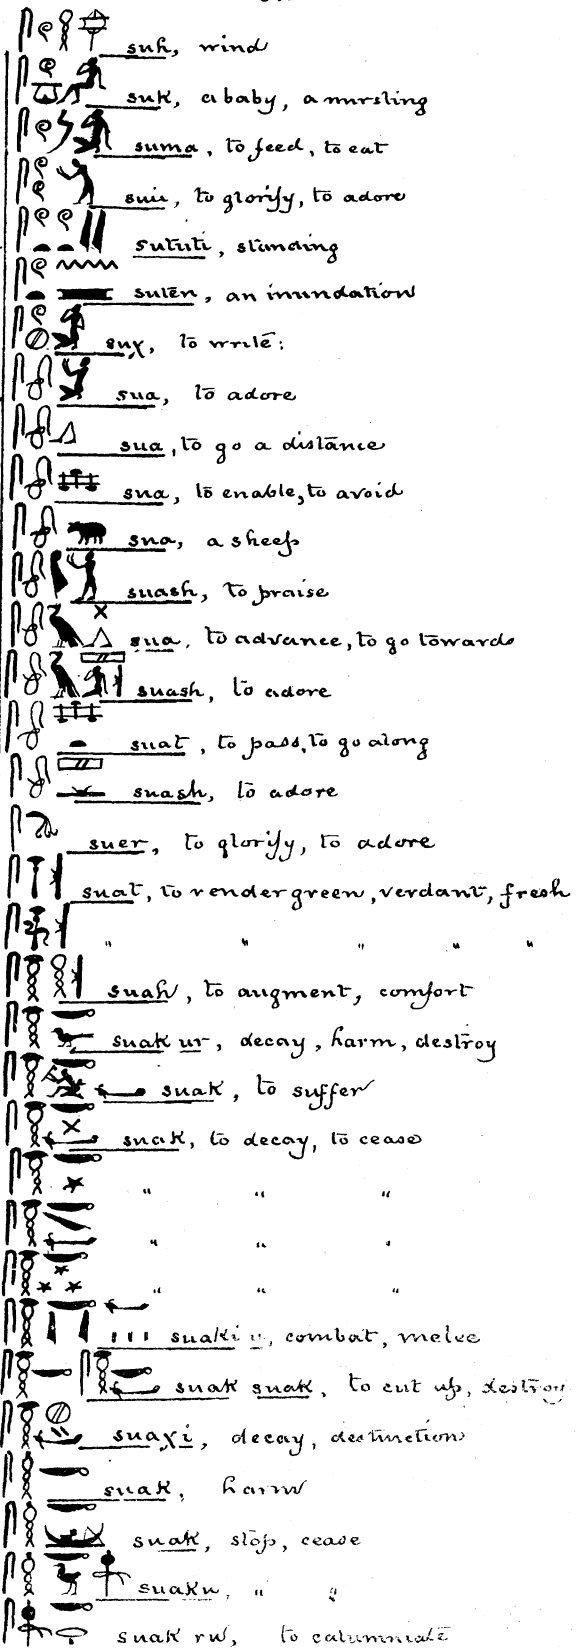 suh, wind
suk, a baby, a nursling
suma, to feed, to eat
suu, to glorify, to adore
sututi, standing
suten, an inundation
suχ, to write;
sua, to adore
sua, to go a distance
sua, to enable, to avoid
sua, a sheep
suash, to praise
sua, to advance, to go towards
suash, to adore
suat, to pass, to go along
suash, to adore
suer, to glorify, to adore
suat, to render green, verdant, fresh
" " " " "
suah, to augment, comfort
suak ur, decay, harm, destroy
suak, to suffer
suak, to decay, to cease
" " "
" " "
" " "
suaki u, combat, melee
suak suak, to cut up, destroy
suaχi, decay, destruction
suak, harm
suak, stop, cease
suaku, " "
suak rw, to calumniate